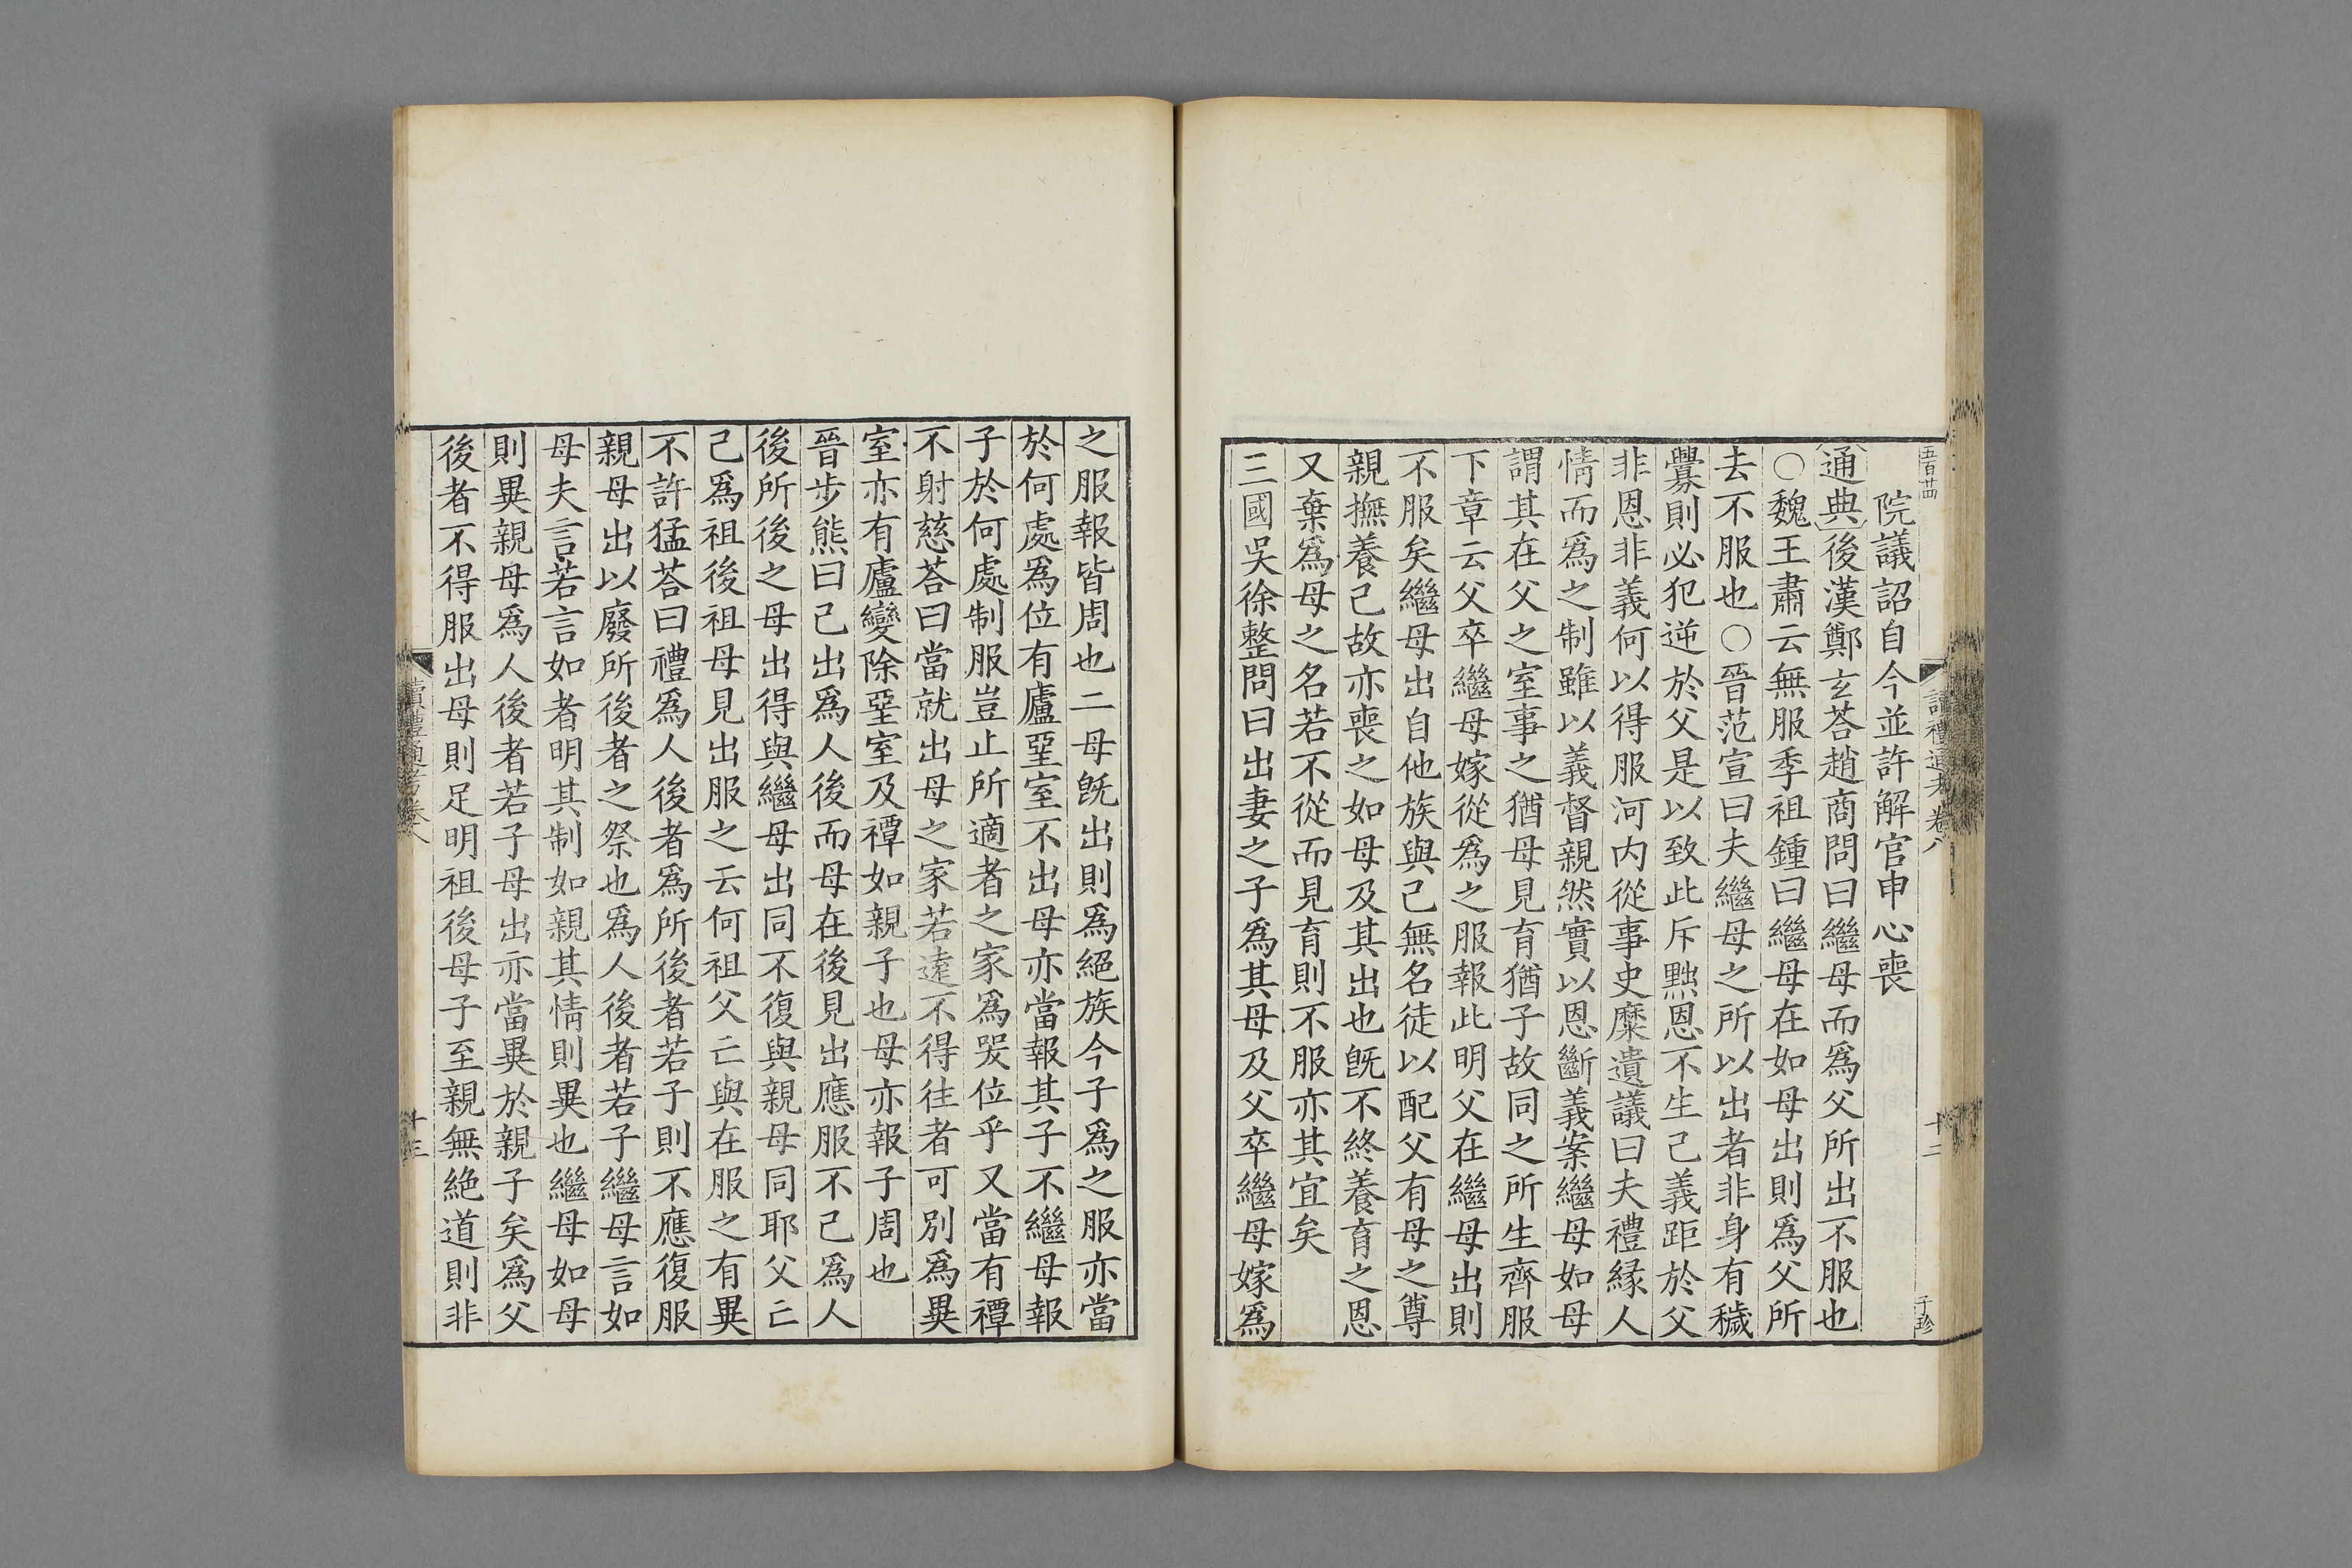 五百廿四
讀禮通考卷八
十二
子珍
院議詔自今並許解官申心喪
通典後漢鄭玄荅趙商問曰繼母而爲父所出不服也
○魏王肅云無服季祖鍾曰繼母在如母出則爲父所
去不服也○晉范宣曰夫繼母之所以出者非身有穢
釁則必犯逆於父是以致此斥黜恩不生己義距於父
非恩非義何以得服河内從事史糜遺議曰夫禮緣人
情而爲之制雖以義督親然實以恩斷義案繼母如母
謂其在父之室事之猶母見育猶子故同之所生齊服
下章云父卒繼母嫁從爲之服報此明父在繼母出則
不服矣繼母出自他族與己無名徒以配父有母之尊
親撫養己故亦喪之如母及其出也旣不終養育之恩
又棄爲母之名若不從而見育則不服亦其宜矣
三國吳徐整問曰出妻之子爲其母及父卒繼母嫁爲
之服報皆周也二母旣出則爲絕族今子爲之服亦當
於何處爲位有廬堊室不出母亦當報其子不繼母報
子於何處制服豈止所適者之家爲哭位乎又當有禫
不射慈荅曰當就出母之家若遠不得往者可別爲異
室亦有廬變除堊室及禫如親子也母亦報子周也
晉步熊曰己出爲人後而母在後見出應服不己爲人
後所後之母出得與繼母出同不復與親母同耶父亡
己爲祖後祖母見出服之云何祖父亡與在服之有異
不許猛荅曰禮爲人後者爲所後者若子則不應復服
親母出以廢所後者之祭也爲人後者若子繼母言如
母夫言若言如者明其制如親其情則異也繼母如母
則異親母爲人後者若子母出亦當異於親子矣爲父
後者不得服出母則足明祖後母子至親無絶道則非
讀禮通考卷八
十三